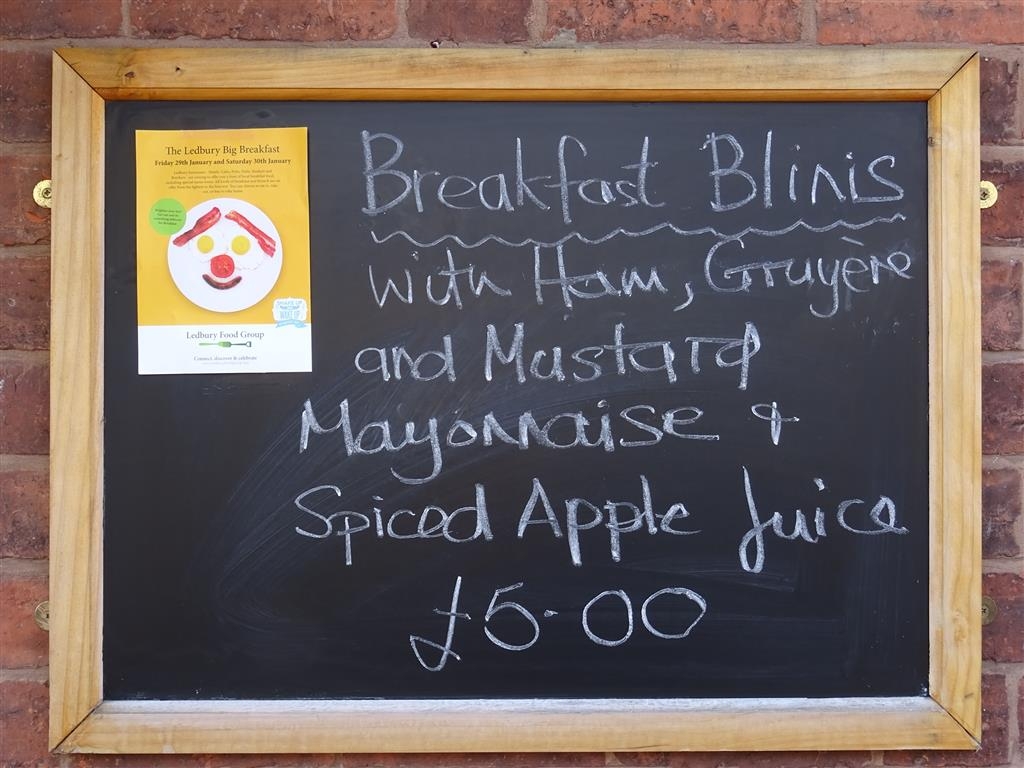 The Ledbury Big Breakfast
Friday 29th January and Saturday 30th January
Ledbury Food Group
Connect, discover & celebrate
SHAKE UP
WAKE UP
Breakfast Blinis
with Ham, Gruyère
and Mustard
Mayonnaise &
Spiced Apple Juice
£5.00